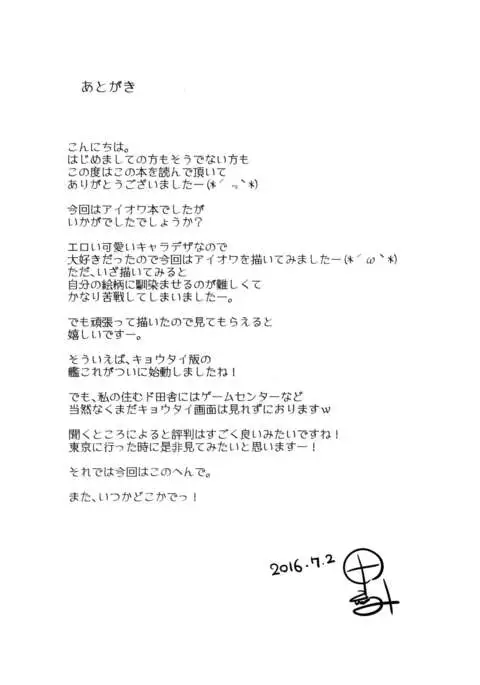 あとがき
こんにちは。
はじめましての方もそうでない方も
この度はこの本を読んで頂いて
ありがとうございましたー(*´﹃`*)
今回はアイオワ本でしたが
いかがでしたでしょうか？
エロい可愛いキャラデザなので
大好きだったので今回はアイオワを描いてみましたー(*´ω`*)
ただ、いざ描いてみると
自分の絵柄に馴染ませるのが難しくて
かなり苦戦してしまいましたー。
でも頑張って描いたので見てもらえると
嬉しいですー。
そういえば、キョウタイ版の
艦これがついに始動しましたね！
でも、私の住むド田舎にはゲームセンターなど
当然なくまだキョウタイ画面は見れずにおりますｗ
聞くところによると評判はすごく良いみたいですね！
東京に行った時に是非見てみたいと思いますー！
それでは今回はこのへんで。
また、いつかどこかでっ！
2016.7.2